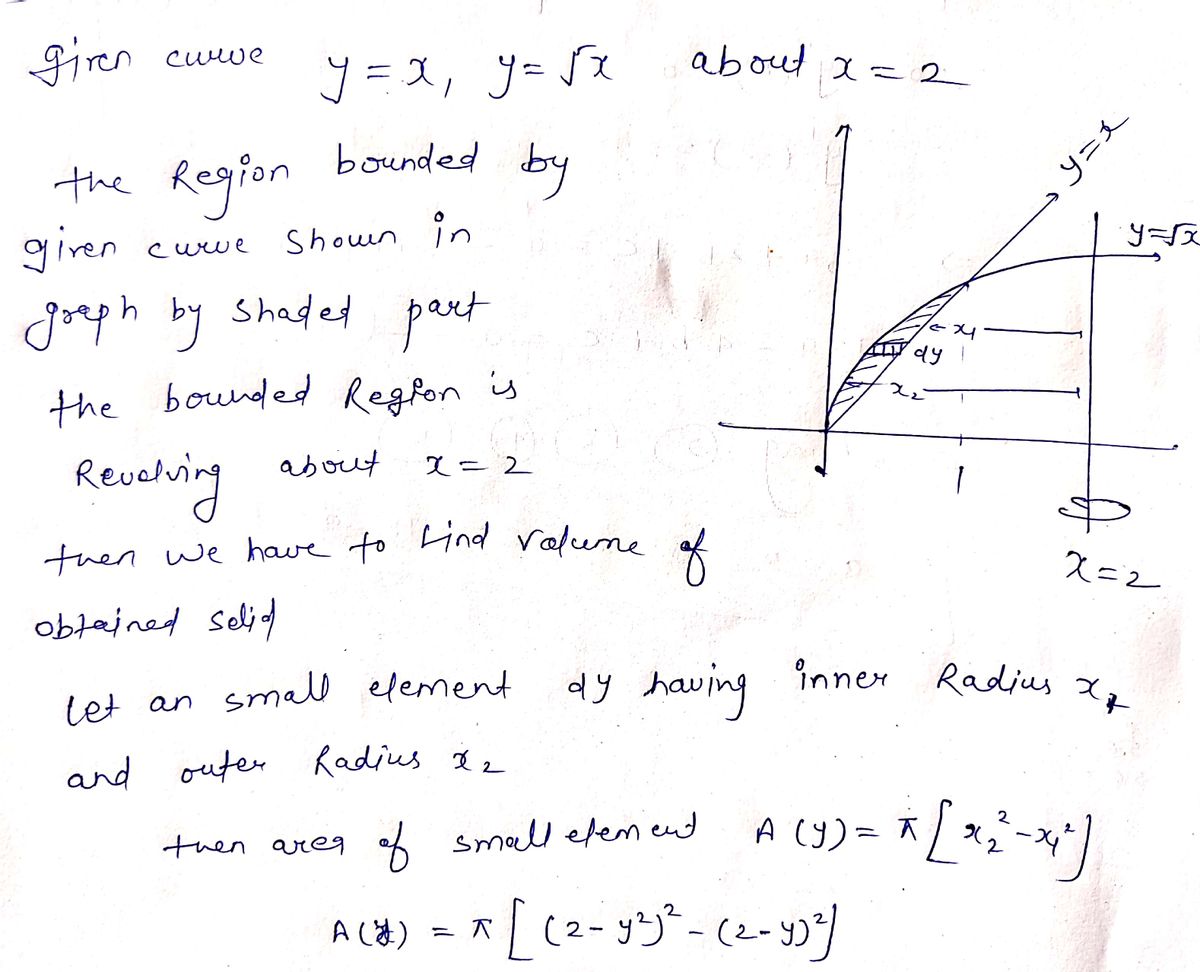 given curve y = x, y = √x about x = 2
the Region bounded by
given curve shown in
graph by shaded part
the bounded Region is
Revolving about x = 2
then we have to find volume of
obtained solid
let an small element dy having inner Radius x₁
and outer Radius x₂
then area of small element A (y) = π [ x₂² - x₁² ]
A (y) = π [ (2 - y²)² - (2 - y)² ]
y = x
y = √x
x₁
dy
x₂
1
x = 2